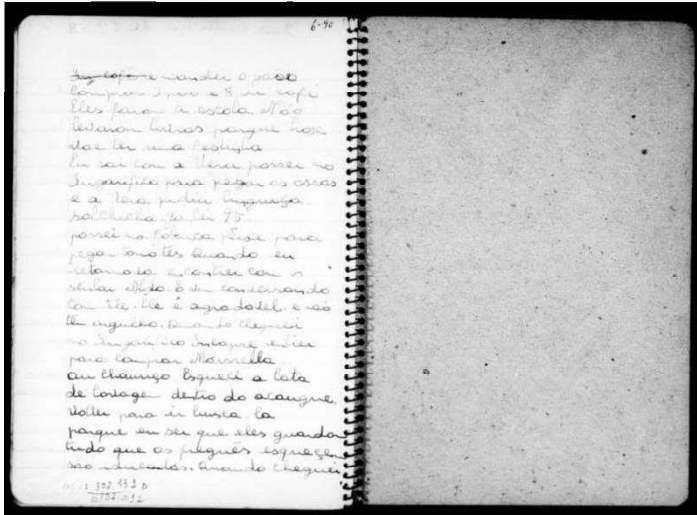 6-90
Fiz café e mandei o João
comprar 3 pão e 8 de café
Eles foram a escola. Não
levaram livros porque hoje
vae ter uma festinha
Eu sai com a Vera passei no
frigorifico para pegar os ossos
e a Vera pediu linguiça
salchicha
passei na fabrica para
pegar tomates Quando eu
retornava encontrei com o
senhor conversando
com êle. Ele é agradavel. e não
tem orgulho. Quando cheguei
no entrei
para comprar Morssella
ou Chouriço Esqueci a lata
de lavagem dentro do açougue.
Voltei para ir busca-la
porque eu sei que eles guarda
tudo que os freguês esqueçem
são Quando cheguei